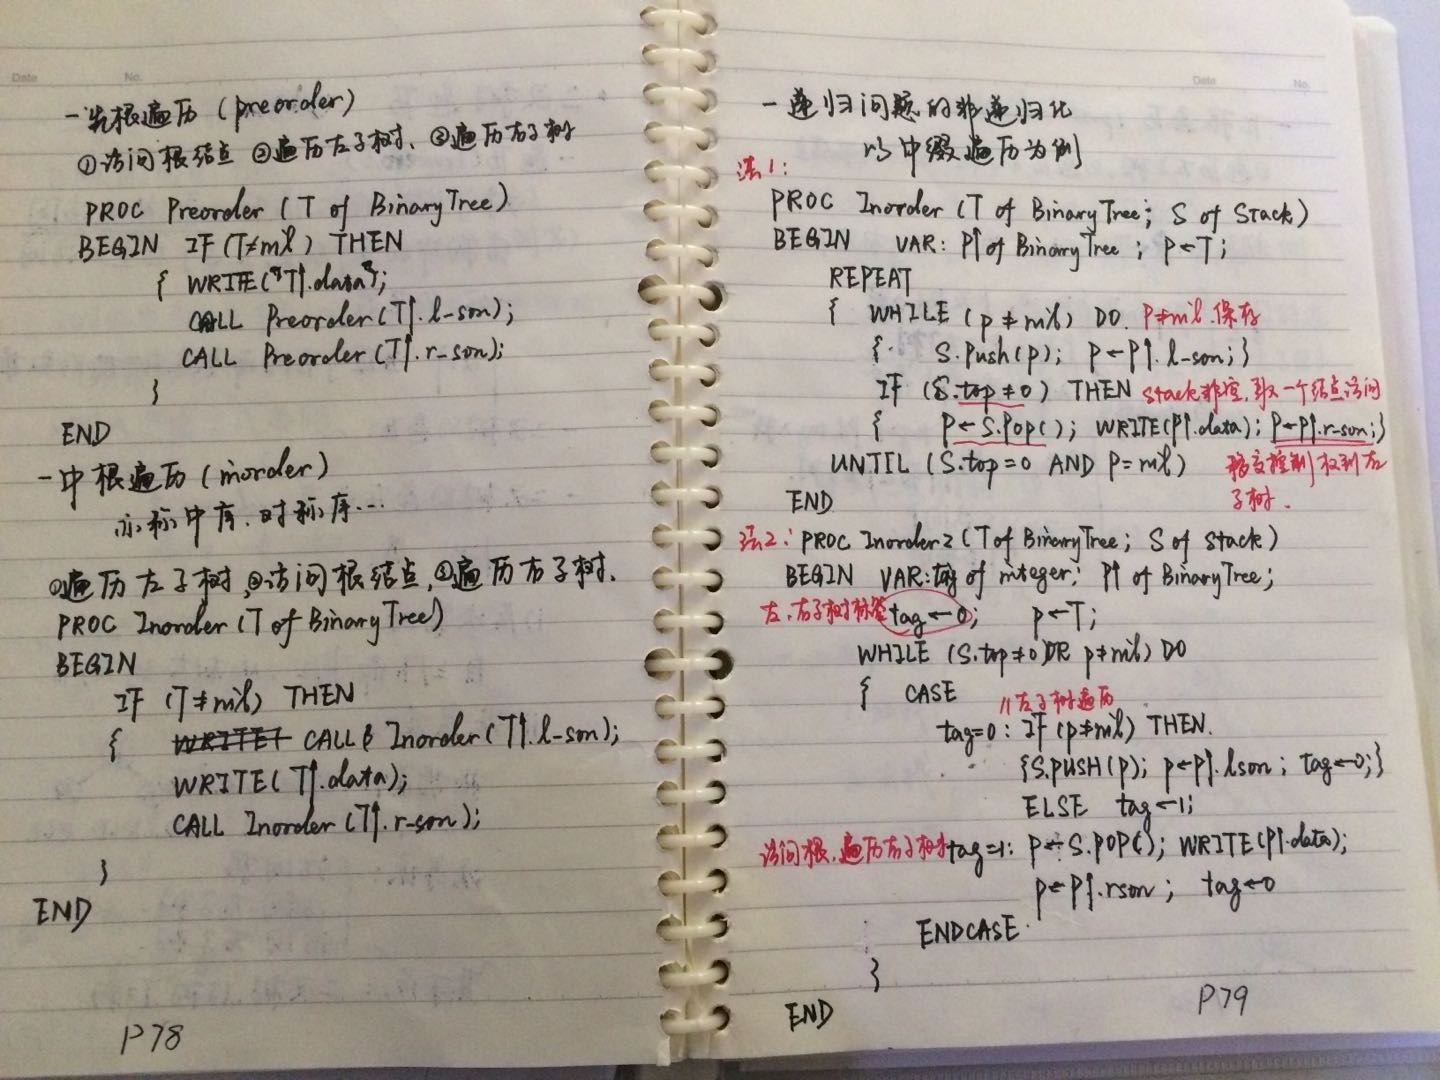 Date No.
一先根遍历 (preorder)
①访问根结点 ②遍历左子树、③遍历右子树
PROC Preorder (T of BinaryTree)
BEGIN IF (T≠nil) THEN
{ WRITE("T↑.data");
CALL Preorder(T↑.l-son);
CALL Preorder(T↑.r-son);
}
END
一中根遍历 (inorder)
亦称中序、对称序...
①遍历左子树,②访问根结点,③遍历右子树.
PROC Inorder (T of BinaryTree)
BEGIN
IF (T≠nil) THEN
{ CALL Inorder(T↑.l-son);
WRITE(T↑.data);
CALL Inorder(T↑.r-son);
}
END
P78
Date No.
一递归问题的非递归化
以中缀遍历为例
法1:
PROC Inorder (T of BinaryTree; S of Stack)
BEGIN VAR: P↑ of BinaryTree; P←T;
REPEAT
{ WHILE (p≠nil) DO. P≠nil.保存
{ S.Push(p); P←P↑.l-son;}
IF (S.top≠0) THEN stack非空,取一个结点访问
{ P←S.Pop(); WRITE(P↑.data); P←P↑.r-son;}
UNTIL (S.top=0 AND P=nil) 移交控制权到右
子树.
END
法2: PROC Inorder2 (T of BinaryTree; S of stack)
BEGIN VAR: tag of integer; P↑ of BinaryTree;
左、右子树标签 tag←0; p←T;
WHILE (S.top≠0 OR p≠nil) DO
{ CASE //左子树遍历
tag=0: IF (p≠nil) THEN.
{S.PUSH(p); p←p↑.lson; tag←0;}
ELSE tag←1;
访问根,遍历右子树 tag=1: p←S.POP(); WRITE(P↑.data);
p←P↑.rson; tag←0
ENDCASE.
}
END
P79